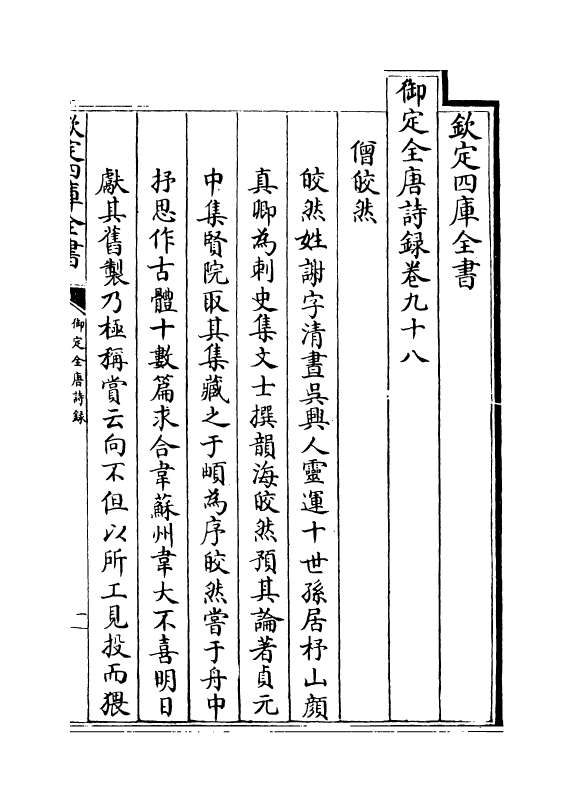 欽定四庫全書
御定全唐詩録卷九十八
僧皎然
皎然姓謝字清晝吳興人靈運十世孫居杼山顔
真卿為刺史集文士撰韻海皎然預其論著貞元
中集賢院取其集藏之于頔為序皎然嘗于舟中
抒思作古體十數篇求合韋蘇州韋大不喜明日
獻其舊製乃極稱賞云向不但以所工見投而猥
欽定四庫全書
御定全唐詩録
一